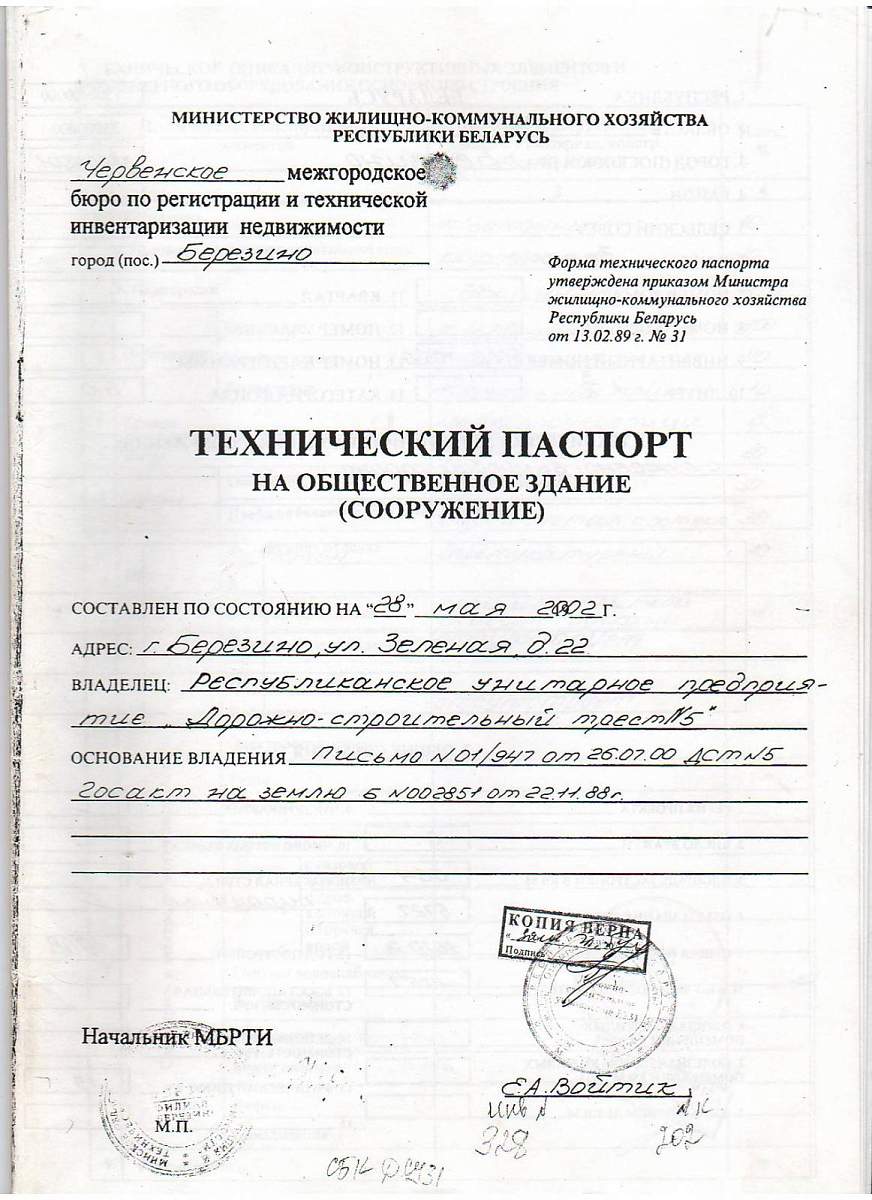 МИНИСТЕРСТВО ЖИЛИЩНО-КОММУНАЛЬНОГО ХОЗЯЙСТВА
РЕСПУБЛИКИ БЕЛАРУСЬ
Червенское межгородское
бюро по регистрации и технической
инвентаризации недвижимости
город (пос.) Березино
Форма технического паспорта
утверждена приказом Министра
жилищно-коммунального хозяйства
Республики Беларусь
от 13.02.89 г. № 31
ТЕХНИЧЕСКИЙ ПАСПОРТ
НА ОБЩЕСТВЕННОЕ ЗДАНИЕ
(СООРУЖЕНИЕ)
СОСТАВЛЕН ПО СОСТОЯНИЮ НА “28” мая 2002 г.
АДРЕС: г. Березино, ул. Зеленая, д. 22.
ВЛАДЕЛЕЦ: Республиканское унитарное предприя-
тие „Дорожно-строительный трест №5“
ОСНОВАНИЕ ВЛАДЕНИЯ письмо N01/947 от 26.07.00 ДСТ N5
Госакт на землю Б N002851 от 22.11.88г.
КОПИЯ ВЕРНА
Подпись
Начальник МБРТИ
Е.А. Войтик
М.П.
инв №
328
202